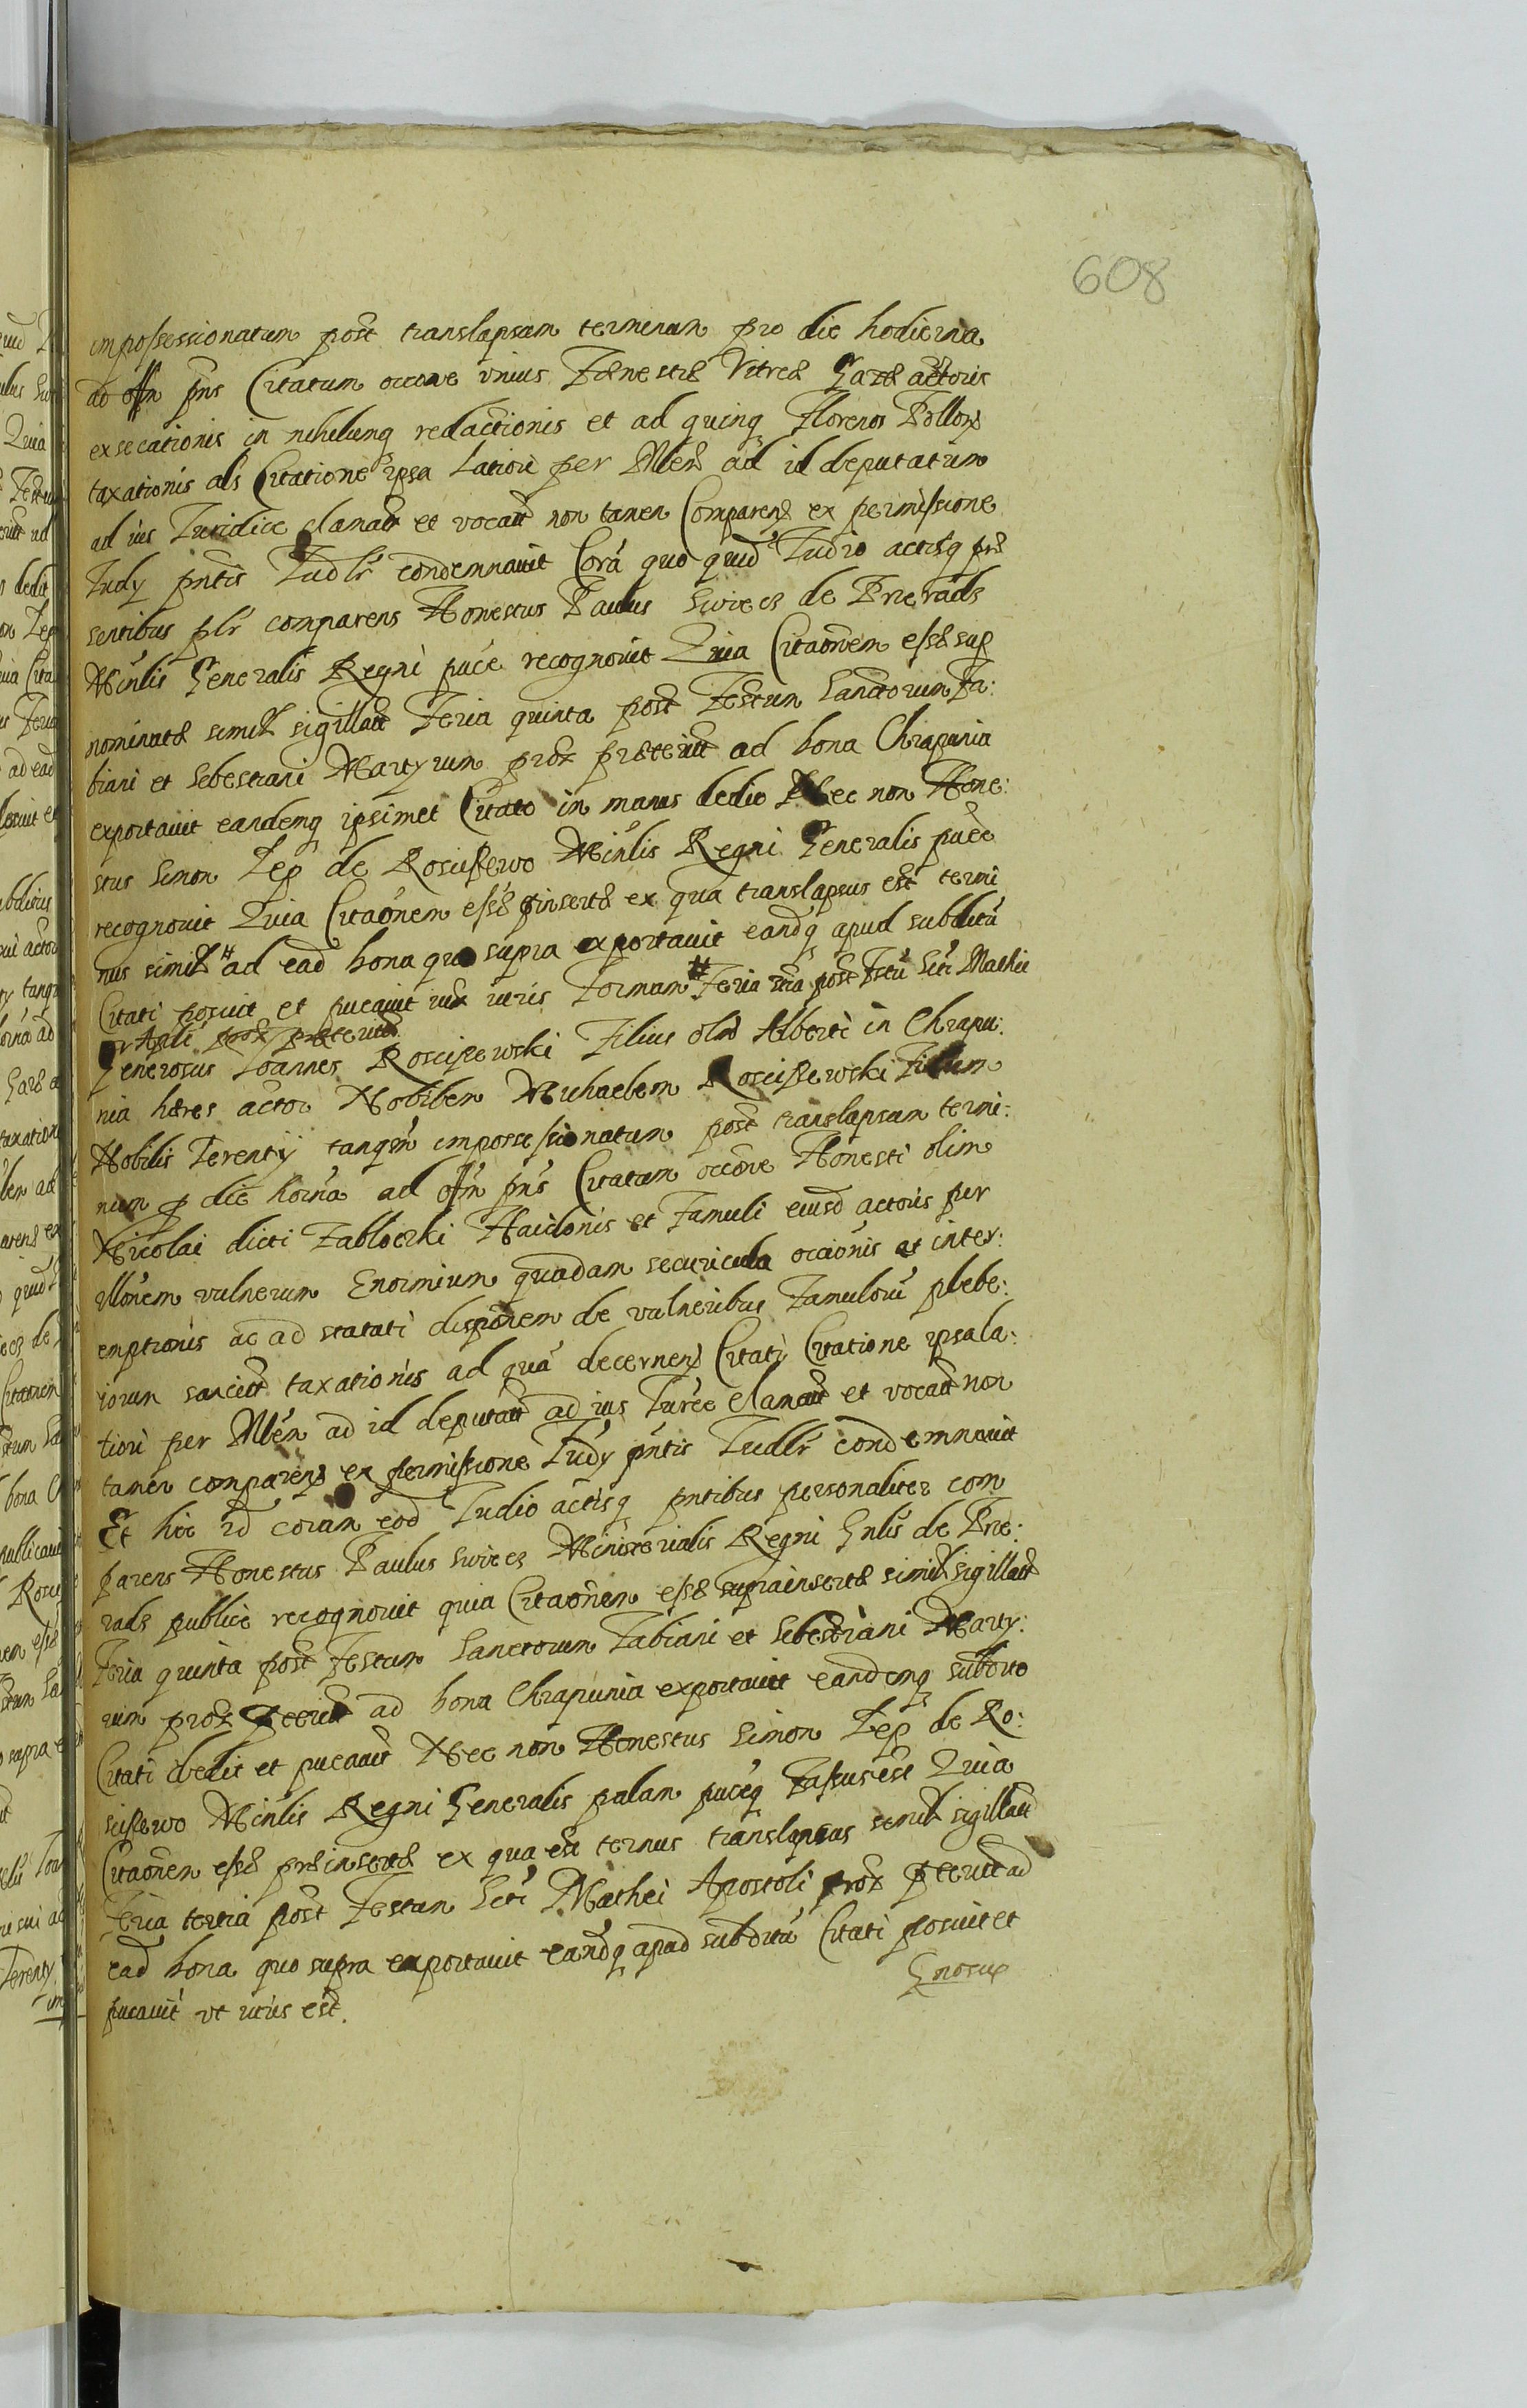 608
impossessionatum post translapsum terminum pro die hodierna
ad offm pns Citatum occone vnius Fenestræ Vitreæ Gazæ actoris
exsecationis in nihilumq redactionis et ad quinq Florenos Pollon
taxationis als Citatione ipsa latiori per Mlem ad id deputatum
ad ius Iuridice clamat et vocat non tamen Comparen ex permissione
Iudy pntis Iudlr condemnauit Corā quo quid Iudio actisq præ
sentibus plr comparens Honestus Paulus Swiecz de Prierads
Minlis Generalis Regni puce recognouit Quia Citaōnem essæ sup
nominatæ simil sigillat Feria quinta post Festum Sanctorum Fa:
biani et Sebestiani Martyrum prox præterit ad bona Chrapunia
exportauit eandemq ipsimet Citato in manus dedit Nec non Hone:
stus Simon Zep de Rosciszewo Minlis Regni Generalis puce
recognouit Quia Citaōnem essæ pinsertæ ex qua translapsus est termi
nus simil # ad ead bona quo supra exportauit eandq apud subditū
Citati posuit et pucauit iux iuris Formam # Feria tertia post Festū Scti Mathei
Apli prox præterit
Generosus Ioannes Rosciszewski Filius olim Alberti in Chrapu:
nia hæres actor Nobilem Michaelem Rosciszewski Filium
Nobilis Terentÿ tanqm impossessionatum post translapsum termi:
num p die hoīna ad offm pns Citatum occone Honesti olim
Nicolai dicti Zabloczki Haidonis et Famuli eiusd actoris per
illōnem vulnerum Enormium quadam securicula occionis et inter:
emptionis ac ad statuti disponem de vulneribus Famulorū plebe:
iorum sancit taxationis ad quā decernen Citati Citatione ipsa la:
tiori per Mlem ad id deputat ad ius Iurce clamat et vocat non
tamen comparen ex permissione Iudy pntis Iudlr condemnauit
Et hic id coram eod Iudio actisq pntibus personaliter com
parens Honestus Paulus Swiecz Ministerialis Regni Gnlis de Prie:
rads publice recognouit quia Citaōnem essæ suprainsertæ simil sigillat
Feria quinta post Festum Sanctorum Fabiani et Sebestiani Marty:
rum prox pterit ad bona Chrapunia exportauit eandemq subdito
Citati dedit et pucauit Nec non Honestus Simon Zep de Ro:
sciszewo Minlis Regni Generalis palam puceq Fassus est Quia
Citaōnem essæ præinsertæ ex qua est ternus translapsus simil sigillat
Feria tertia post Festum Scti Mathei Apostoli prox pterit ad
ead bona quo supra exportauit eandq apud subditū Citati posuit et
pucauit vt iuris est.
Gnosus